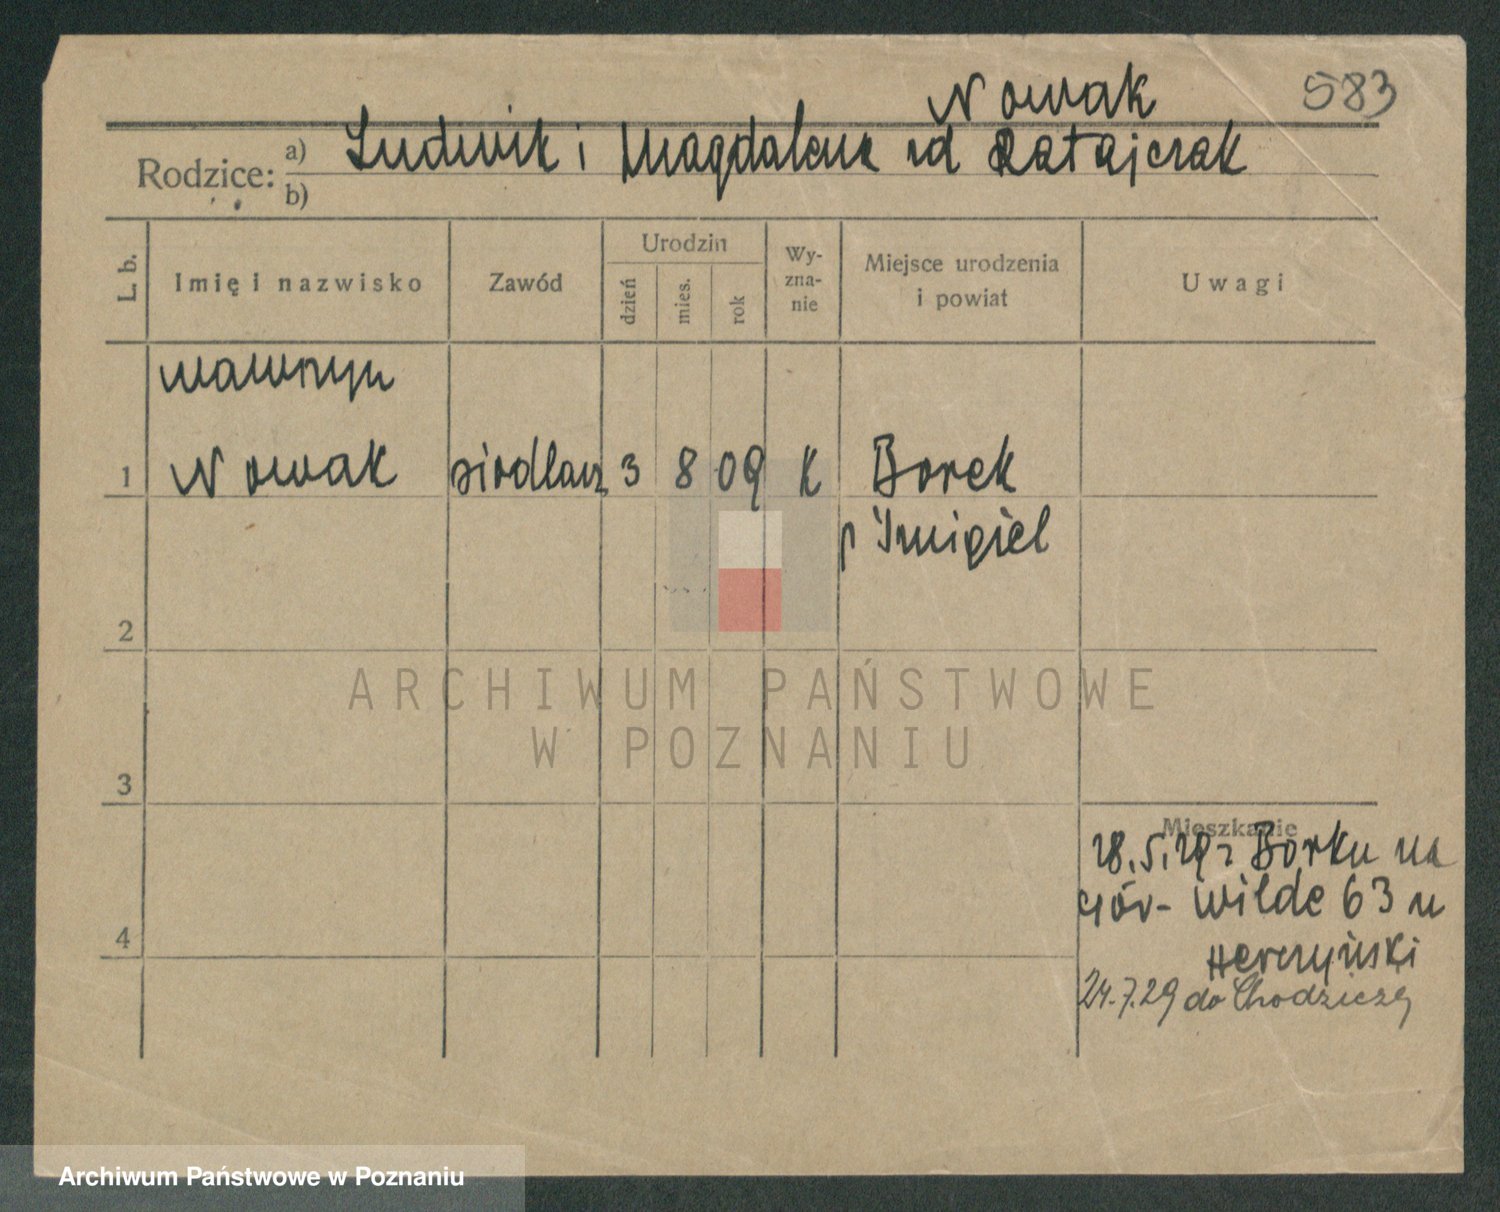 Nowak 583
Rodzice: a) Ludwik i Magdalena zd Ratajczak
b)
L. b. Imię i nazwisko Zawód Urodzin dzień mies. rok Wyzna-nie Miejsce urodzenia i powiat Uwagi
Wawrzyn
1 Nowak siodlarz 3 8 09 K Borek
p Śmigiel
2
ARCHIWUM PAŃSTWOWE
W POZNANIU
3
Mieszkanie
28.5.29 z Borku na
Gór- Wilde 63 u
4 Herczyński
24.7.29 do Chodzieży
Archiwum Państwowe w Poznaniu